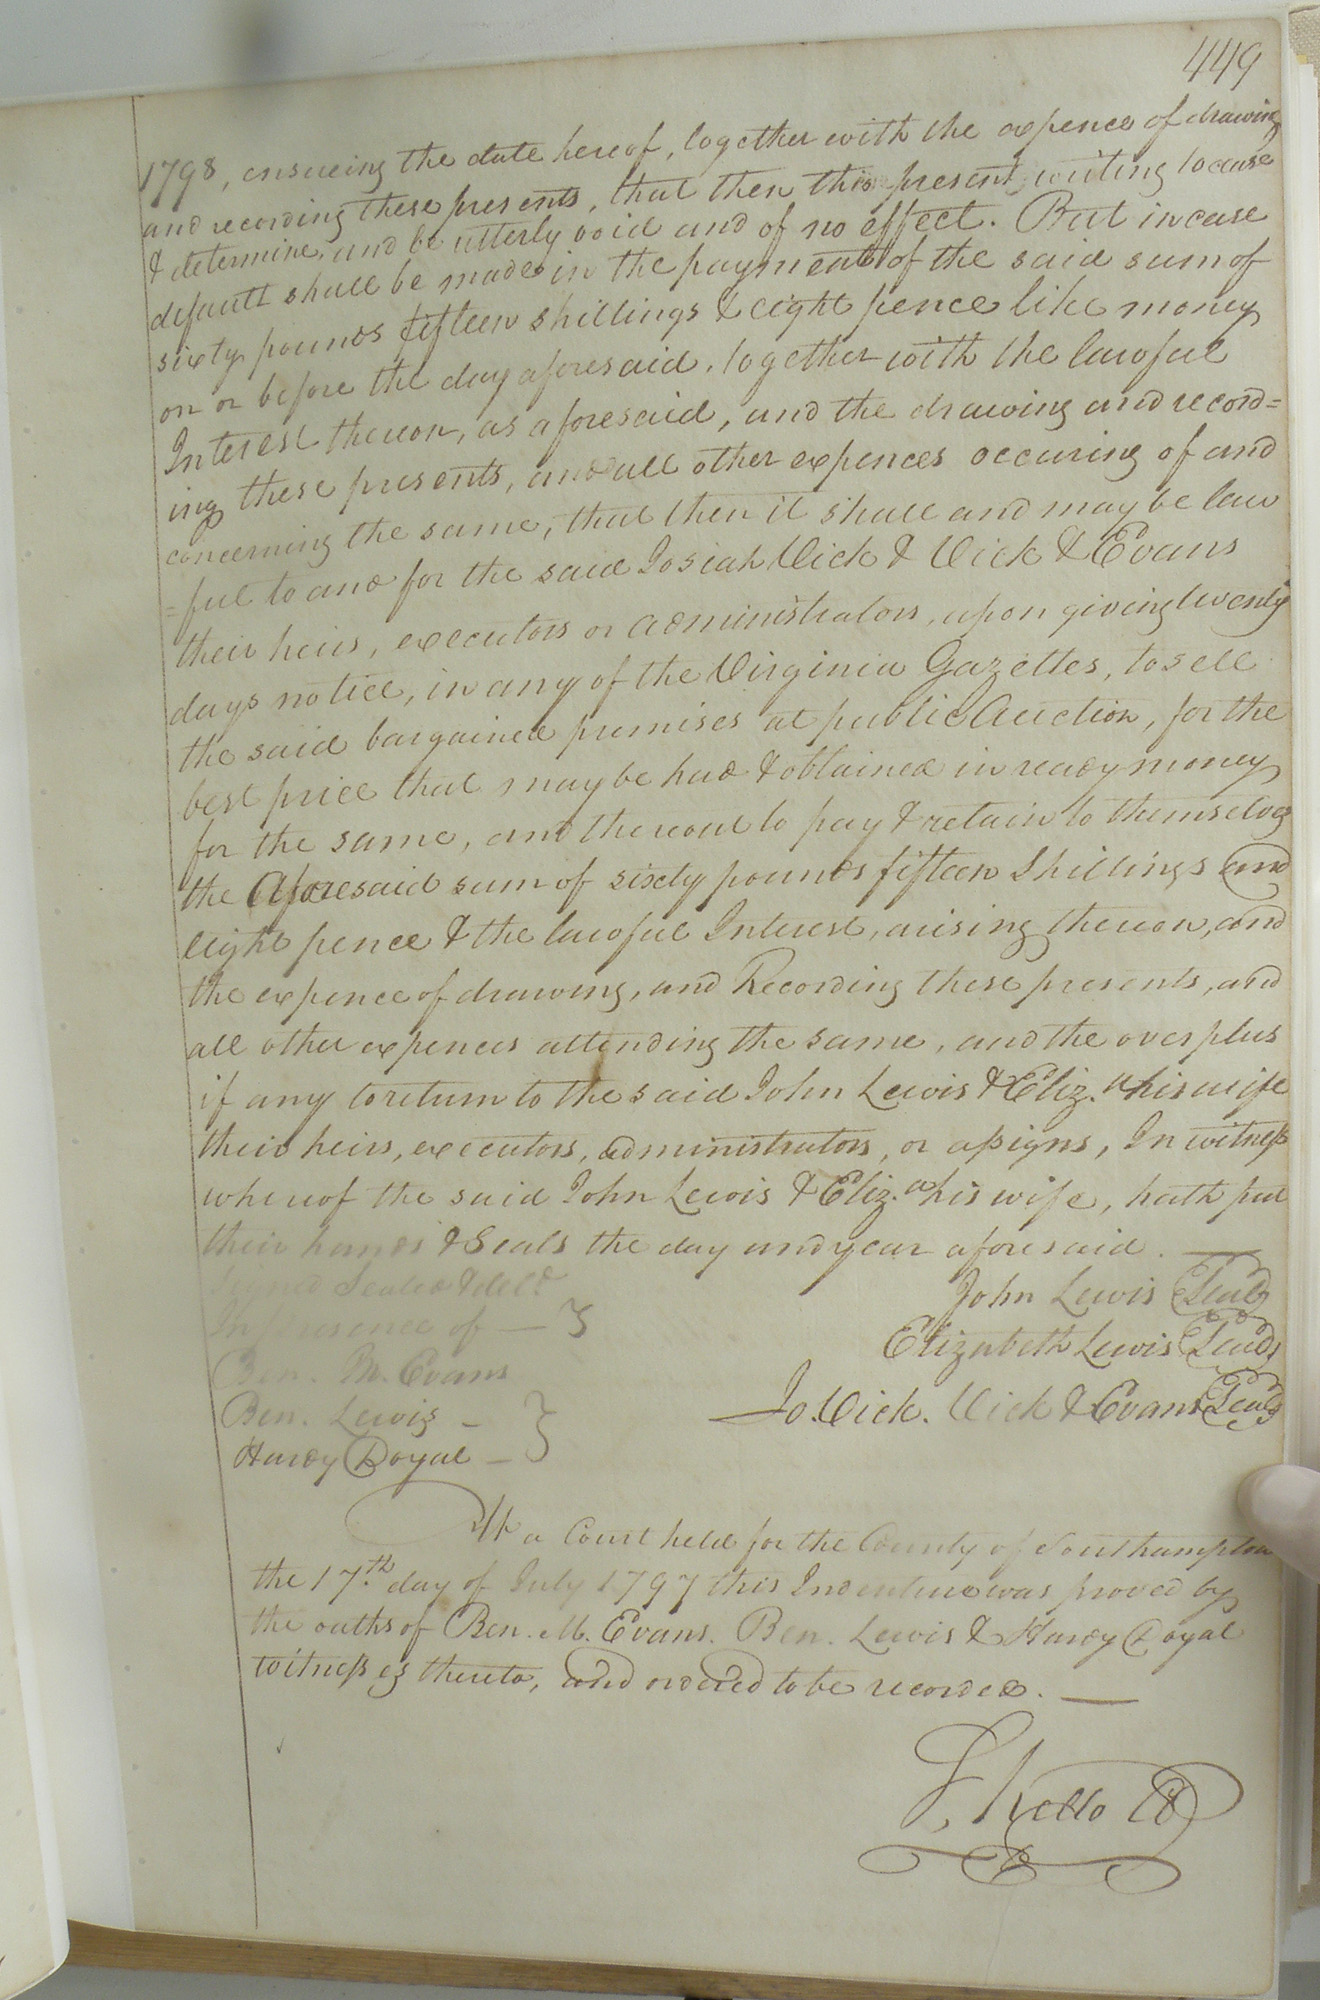 449
1798, ensueing the date hereof, together with the expence of drawing
and recording these presents, that then this present writing to cease
& determine, and be utterly void and of no effect. But in case
default shall be made in the payment of the said sum of
sixty pounds fifteen shillings & eight pence like money
on or before the day aforesaid, together with the lawful
Interest thereon, as aforesaid, and the drawing and record=
ing these presents, and all other expences occuring of and
concerning the same, that then it shall and may be law
=ful to and for the said Josiah Vick & Vick & Evans
their heirs, executors or administrators, upon giving twenty
days notice, in any of the Virginia Gazettes, to sell
the said bargained premises at public Auction, for the
best price that may be had & obtained in ready money
for the same, and thereout to pay & retain to themselves
the Aforesaid sum of sixty pounds fifteen Shillings and
eight pence & the lawful Interest, arising thereon, and
the expence of drawing, and Recording these presents, and
all other expences attending the same, and the overplus
if any to return to the said John Lewis & Eliz.a his wife
their heirs, executors, administrators, or assigns, In witness
whereof the said John Lewis & Eliz.a his wife, hath put
their hands & Seals the day and year aforesaid.
Signed Sealed & deld
In presence of
John Lewis Seal
Elizabeth Lewis Seal
Ben. M. Evans
Ben. Lewis
Jo. Vick. Vick & Evans Seal
Hardy Doyal
At a Court held for the County of Southampton
the 17th. day of July 1797 this Indenture was proved by
the oaths of Ben. M. Evans. Ben. Lewis & Hardy Doyal
witnesses thereto, and ordered to be recorded.
S. Kello CC